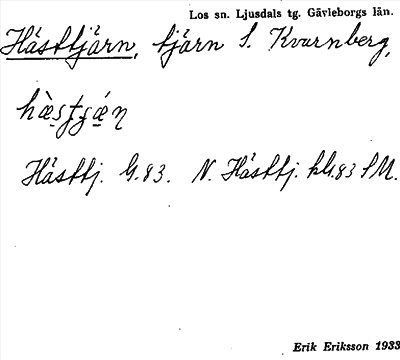 Los sn. Ljusdals tg. Gävleborgs län.
Hästtjärn, tjärn S. Kvarnberg,
Hästtj. G.83. N. Hästtj. hG.83 SM.
Erik Eriksson 1933